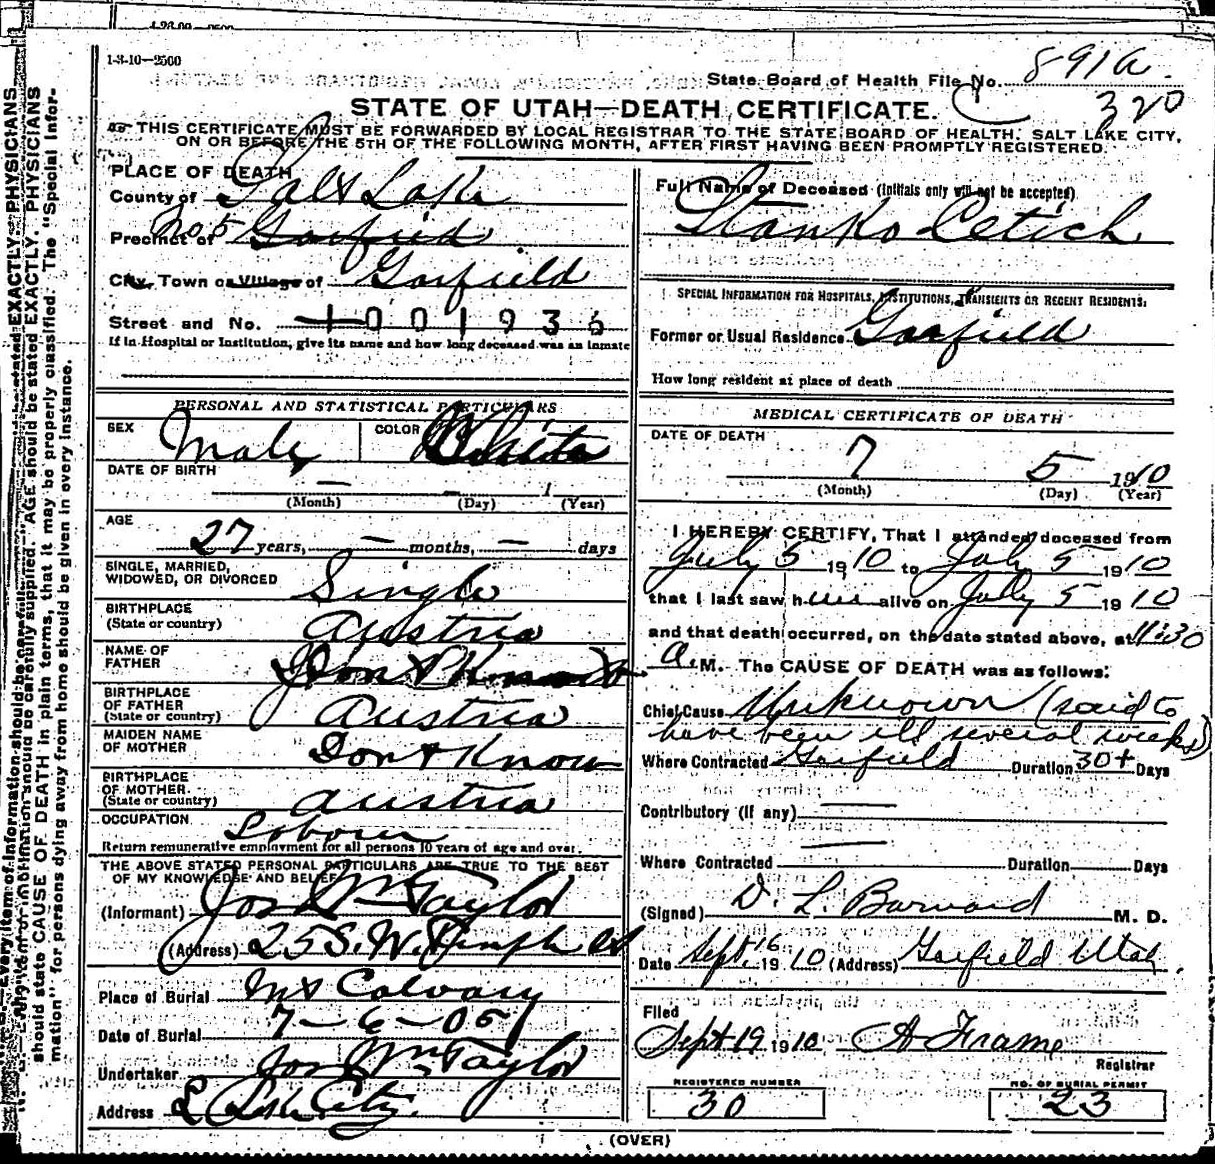 1-3-10—2500
State Board of Health File No. 891a
C 320
STATE OF UTAH—DEATH CERTIFICATE.
THIS CERTIFICATE MUST BE FORWARDED BY LOCAL REGISTRAR TO THE STATE BOARD OF HEALTH, SALT LAKE CITY,
ON OR BEFORE THE 5TH OF THE FOLLOWING MONTH, AFTER FIRST HAVING BEEN PROMPTLY REGISTERED.
PLACE OF DEATH
County of Salt Lake
Precinct of No 5 Garfield
City, Town or Village of Garfield
Street and No. 1001936
If in Hospital or Institution, give its name and how long deceased was an inmate
PERSONAL AND STATISTICAL PARTICULARS
SEX Male COLOR White
DATE OF BIRTH — — 1
(Month) (Day) (Year)
AGE
27 years, — months, — days
SINGLE, MARRIED,
WIDOWED, OR DIVORCED Single
BIRTHPLACE
(State or country) Austria
NAME OF
FATHER Dont Know
BIRTHPLACE
OF FATHER
(State or country) Austria
MAIDEN NAME
OF MOTHER Dont Know
BIRTHPLACE
OF MOTHER
(State or country) Austria
OCCUPATION Laborer
Return remunerative employment for all persons 10 years of age and over.
THE ABOVE STATED PERSONAL PARTICULARS ARE TRUE TO THE BEST
OF MY KNOWLEDGE AND BELIEF
(Informant) Jos Wm Taylor
(Address) 25 S. W. Temple St
Place of Burial Mt Calvary
Date of Burial 7-6-05
Undertaker Jos Wm Taylor
Address S Lake City.
Full Name of Deceased (Initials only will not be accepted)
Stanko Cetich
SPECIAL INFORMATION FOR HOSPITALS, INSTITUTIONS, TRANSIENTS OR RECENT RESIDENTS:
Former or Usual Residence Garfield
How long resident at place of death
MEDICAL CERTIFICATE OF DEATH
DATE OF DEATH
7 5 1910
(Month) (Day) (Year)
I HEREBY CERTIFY, That I attended deceased from
July 5 1910 to July 5 1910
that I last saw him alive on July 5 1910
and that death occurred, on the date stated above, at 11:30
a. M. The CAUSE OF DEATH was as follows:
Chief Cause Unknown (said to
have been ill several weeks)
Where Contracted Garfield Duration 30+ Days
Contributory (If any) —
Where Contracted Duration Days
(Signed) D. L. Barnard M. D.
Date Sept. 16 1910 (Address) Garfield Utah.
Filed
Sept 19 1910 A Frame
Registrar
REGISTERED NUMBER
30
NO. OF BURIAL PERMIT
23
(OVER)
should state CAUSE OF DEATH in plain terms, that it may be properly classified. The "Special Infor-
mation" for persons dying away from home should be given in every instance.